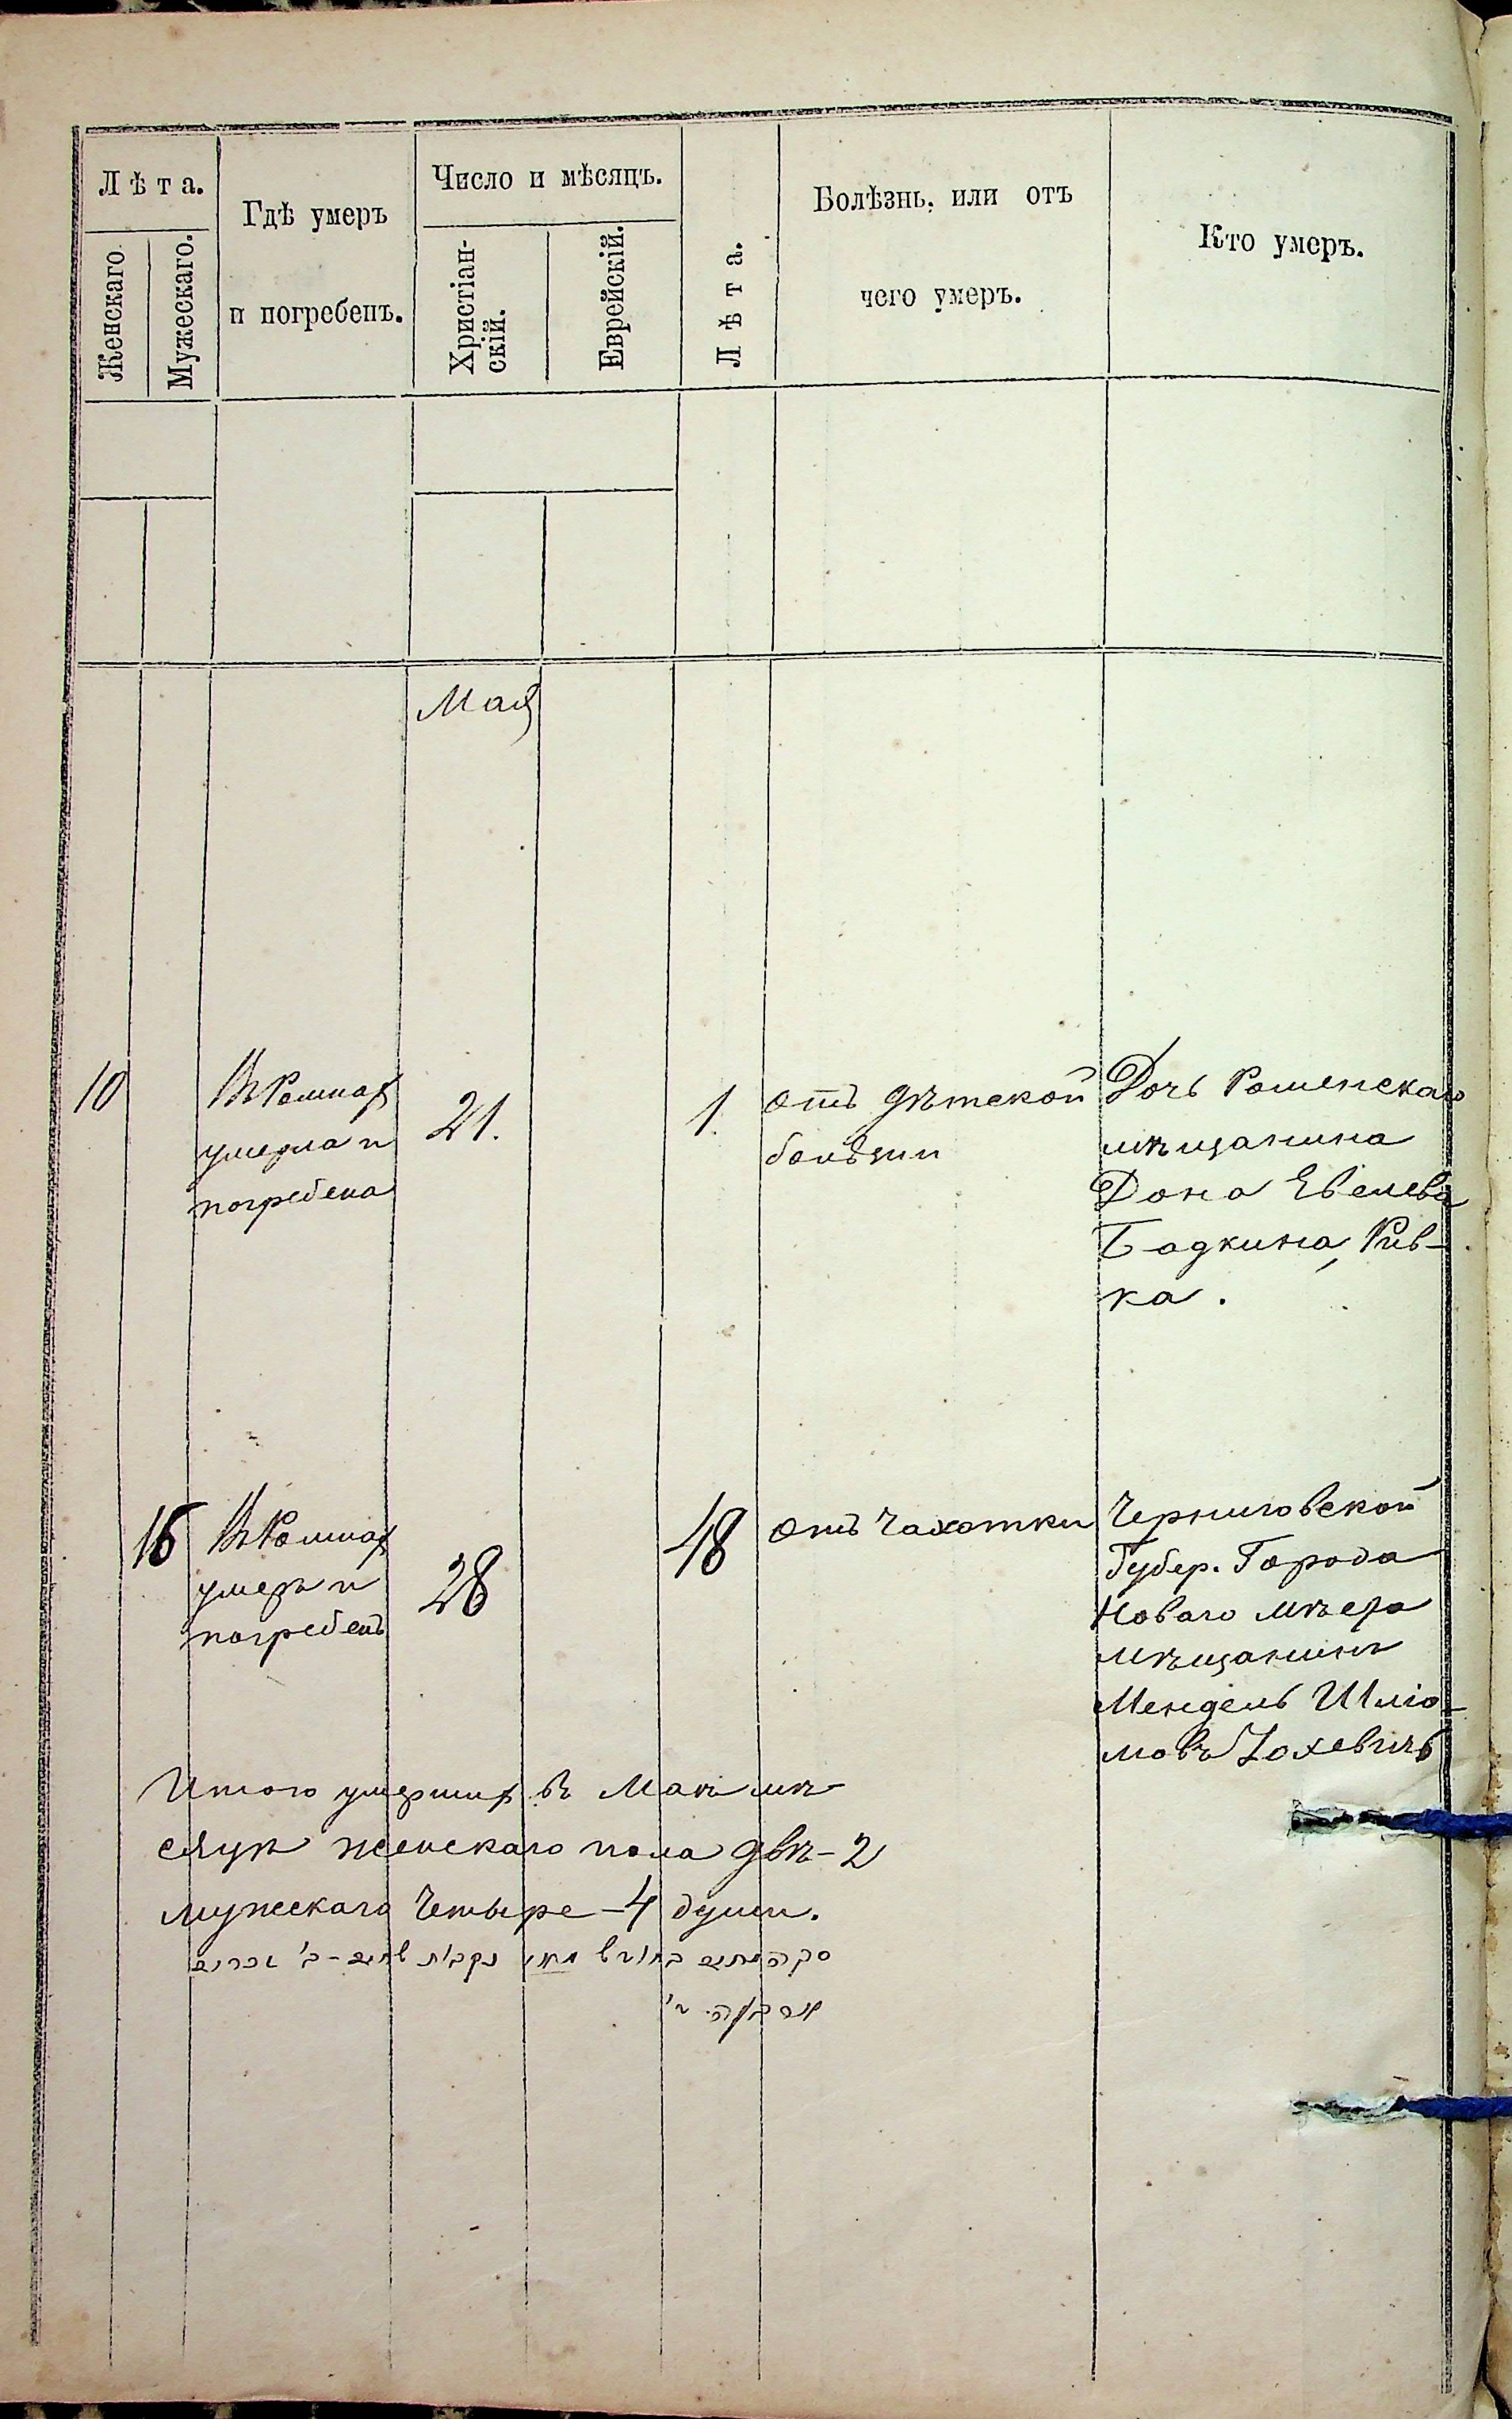 Лѣта.
Женскаго
Мужескаго.
Гдѣ умеръ
и погребенъ.
Число и мѣсяцъ.
Христіан-
скій.
Еврейскій.
Лѣта.
Болѣзнь, или отъ
чего умеръ.
Кто умеръ.
Мая
10
Въ Ромнах
умерла и
погребена
21.
1.
отъ дѣтской
болѣзни
Дочь Роменскаго
мѣщанина
Дона Евелева
Бадкина, Рив-
ка.
16
Въ Ромнах
умеръ и
погребенъ
28
48
отъ Чахотки
Черниговской
Губер. Города
Новаго мѣста
мѣщанинъ
Мендель Шлио-
мовъ Хохевичъ
Итого умерших въ Маѣ мѣ-
сяцѣ женскаго пола двѣ-2
мужескаго Четыре-4 души.